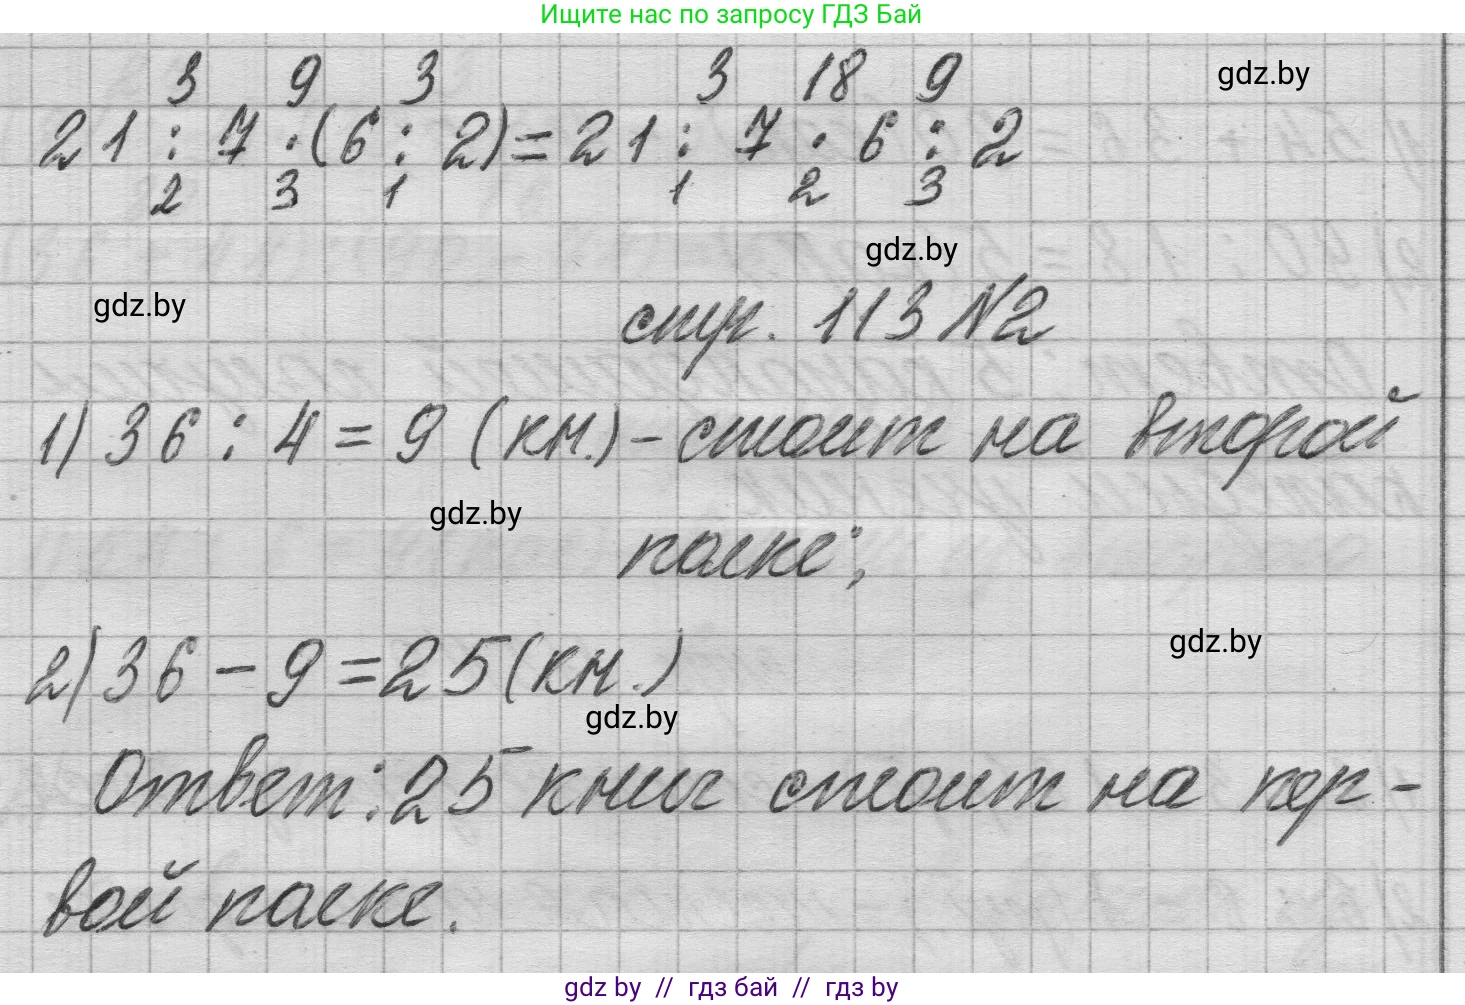 Ищите нас по запросу ГДЗ Бай
3 9 3 3 18 9
gdz.by
21 : 7 · (6 : 2) = 21 : 7 · 6 : 2
2 3 1 1 2 3
gdz.by
gdz.by
стр. 113 №2
1) 36 : 4 = 9 (кн.) - стоит на второй
gdz.by
полке;
gdz.by
2) 36 - 9 = 25 (кн.)
gdz.by
Ответ: 25 книг стоит на пер-
вой полке.
gdz by // гдз бай // гдз by